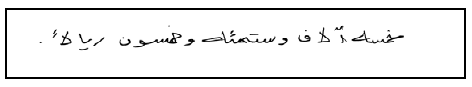 خمسة آلاف وستمئة وخمسون ريالاً.